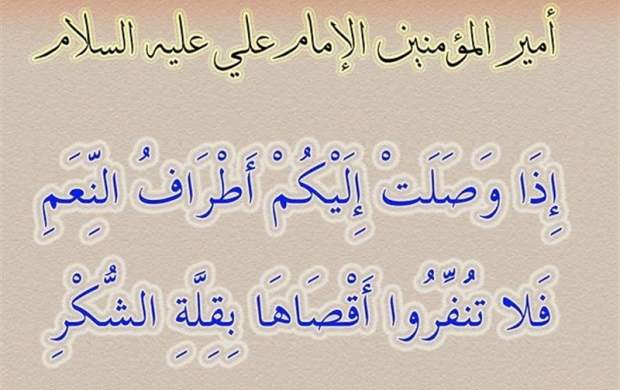 أمير المؤمنين الإمام علي عليه السلام
إِذَا وَصَلَتْ إِلَيْكُمْ أَطْرَافُ النِّعَمِ
فَلا تُنُفِّرُوا أَقْصَاهَا بِقِلَّةِ الشُّكْرِ